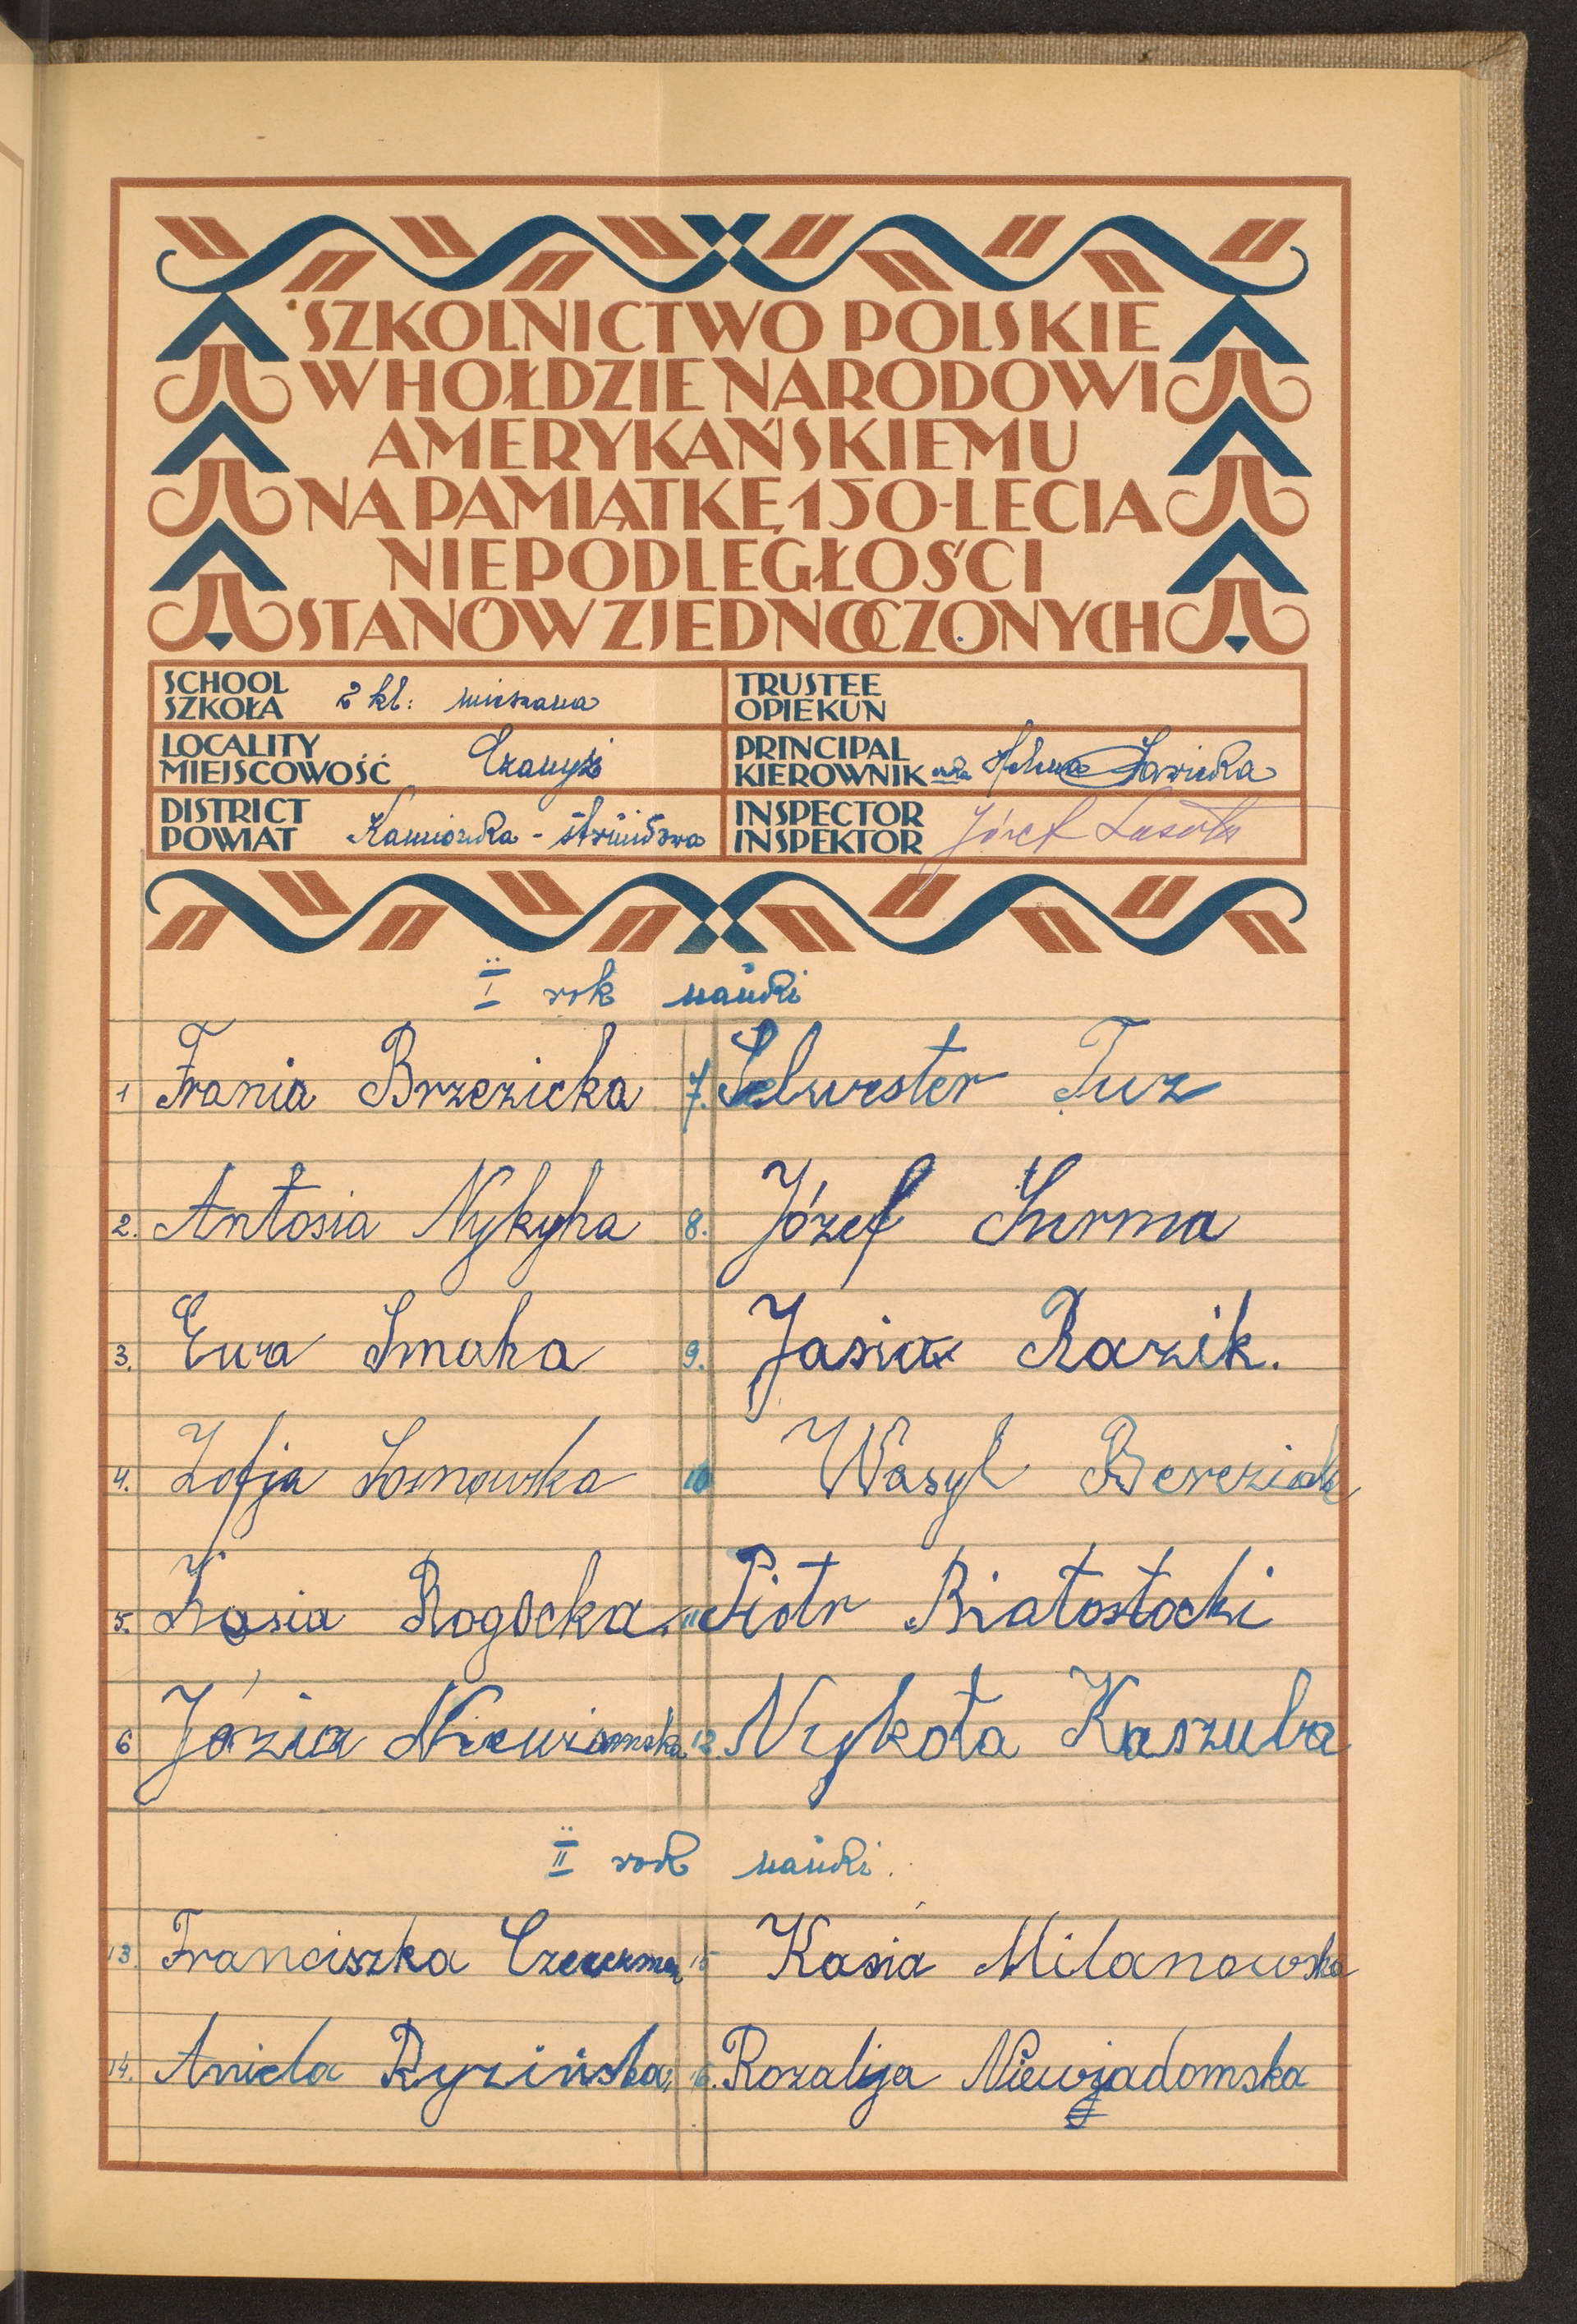 SZKOLNICTWO POLSKIE
W HOŁDZIE NARODOWI
AMERYKAŃSKIEMU
NA PAMIĄTKĘ 150-LECIA
NIEPODLEGŁOŚCI
STANÓW ZJEDNOCZONYCH
SCHOOL
SZKOŁA 2 kl: mieszana
TRUSTEE
OPIEKUN
LOCALITY
MIEJSCOWOŚĆ Czanyż
PRINCIPAL
KIEROWNIK Sawicka
DISTRICT
POWIAT Kamionka - strumiłowa
INSPECTOR
INSPEKTOR Józef
I rok nauki
1 Frania Brzezicka
7. Selwester Tuz
2. Antosia Nykyha
8. Józef Surma
3. Ewa Smaha
9. Jasia Razik.
4. Zofja Sosnowska
10 Wasyl Bereziak
5. Kasia Rogocka
11 Piotr Białostocki
6 Józia
12. Nykoła Kaszuba
II rok nauki.
13. Franciszka
15 Kasia Milanowska
14. Aniela Ryzińska
16. Rozalija Niewjadomska